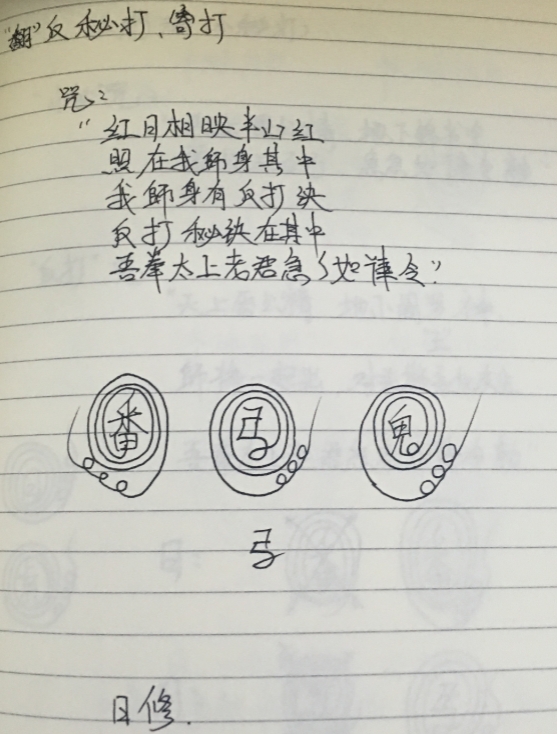 "翻"反秘打、寄打
咒:
"红日相映半山红
照在我师身其中
我師身有反打诀
反打秘诀在其中
吾奉太上老君急々如律令"
番 弓 鬼
弓
日修.